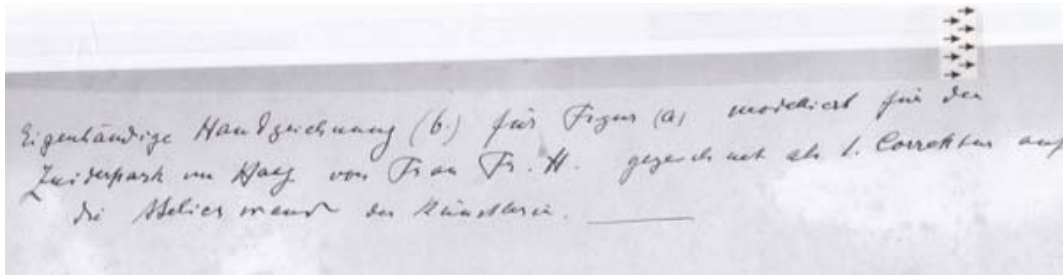 Eigenhändige Handzeichnung (b.) für Figur (a) modelliert für den
Zuiderpark im Haag von Frau Fr. H. gezeichnet als 1. Correktur auf
die Atelierwand der Künstlerin.